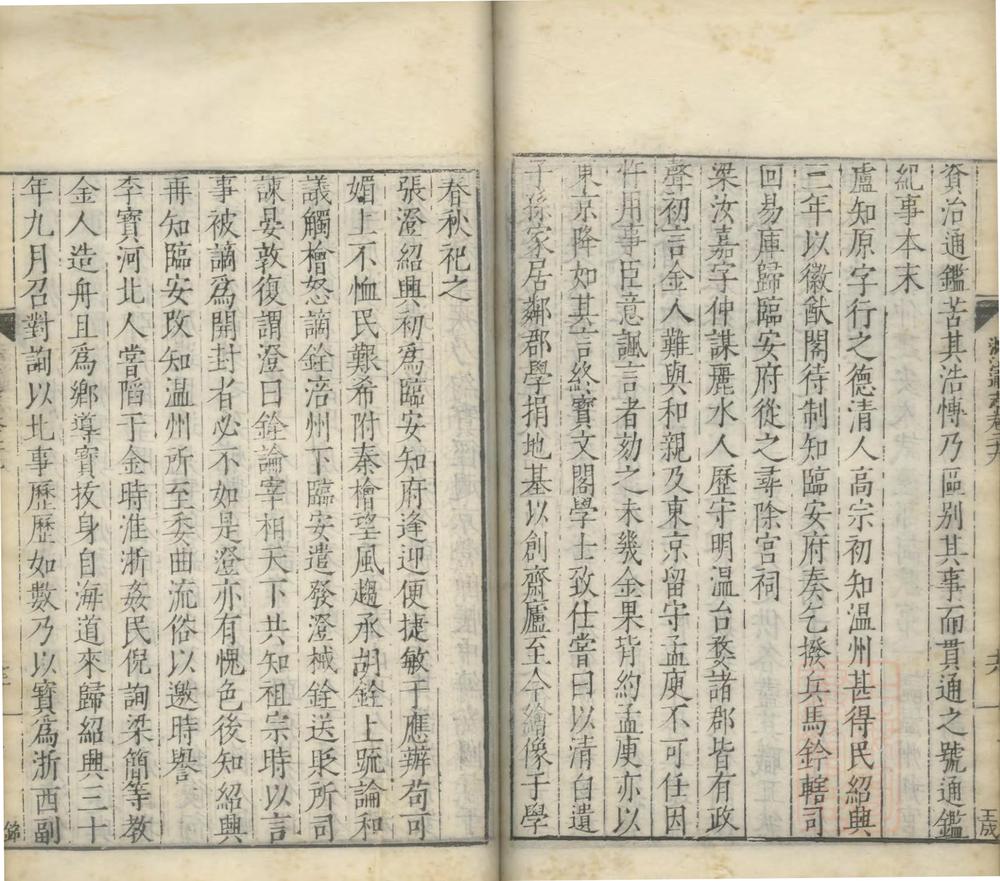 資治通鑑苦其浩愽乃區别其事而貫通之號通鑑
紀事本末
盧知原字行之德清人高宗初知温州甚得民紹興
三年以徽猷閣待制知臨安府奏乞撥兵馬鈐轄司
回易庫歸臨安府從之尋除宫祠
梁汝嘉字仲謀麗水人歷守明温台婺諸郡皆有政
聲初言金人難與和親及東京留守孟庾不可任因
忤用事臣意諷言者劾之未幾金果背約孟庾亦以
東京降如其言終寶文閣學士致仕嘗曰以清白遺
子孫家居鄰郡學捐地基以創齋廬至今繪像于學
春秋祀之
張澄紹興初為臨安知府逢迎便捷敏于應辦苟可
媚上不恤民艱希附秦檜望風趨承胡銓上疏論和
議觸檜怒謫銓涪州下臨安遣發澄械銓送貶所司
諫晏敦復謂澄曰銓論宰相天下共知祖宗時以言
事被謫爲開封者必不如是澄亦有愧色後知紹興
再知臨安改知温州所至委曲流俗以邀時譽
李寶河北人嘗䧟于金時淮浙姦民倪詢梁簡等教
金人造舟且爲鄉導寶拔身自海道來歸紹興三十
年九月召對詢以北事歷歷如數乃以寶爲浙西副